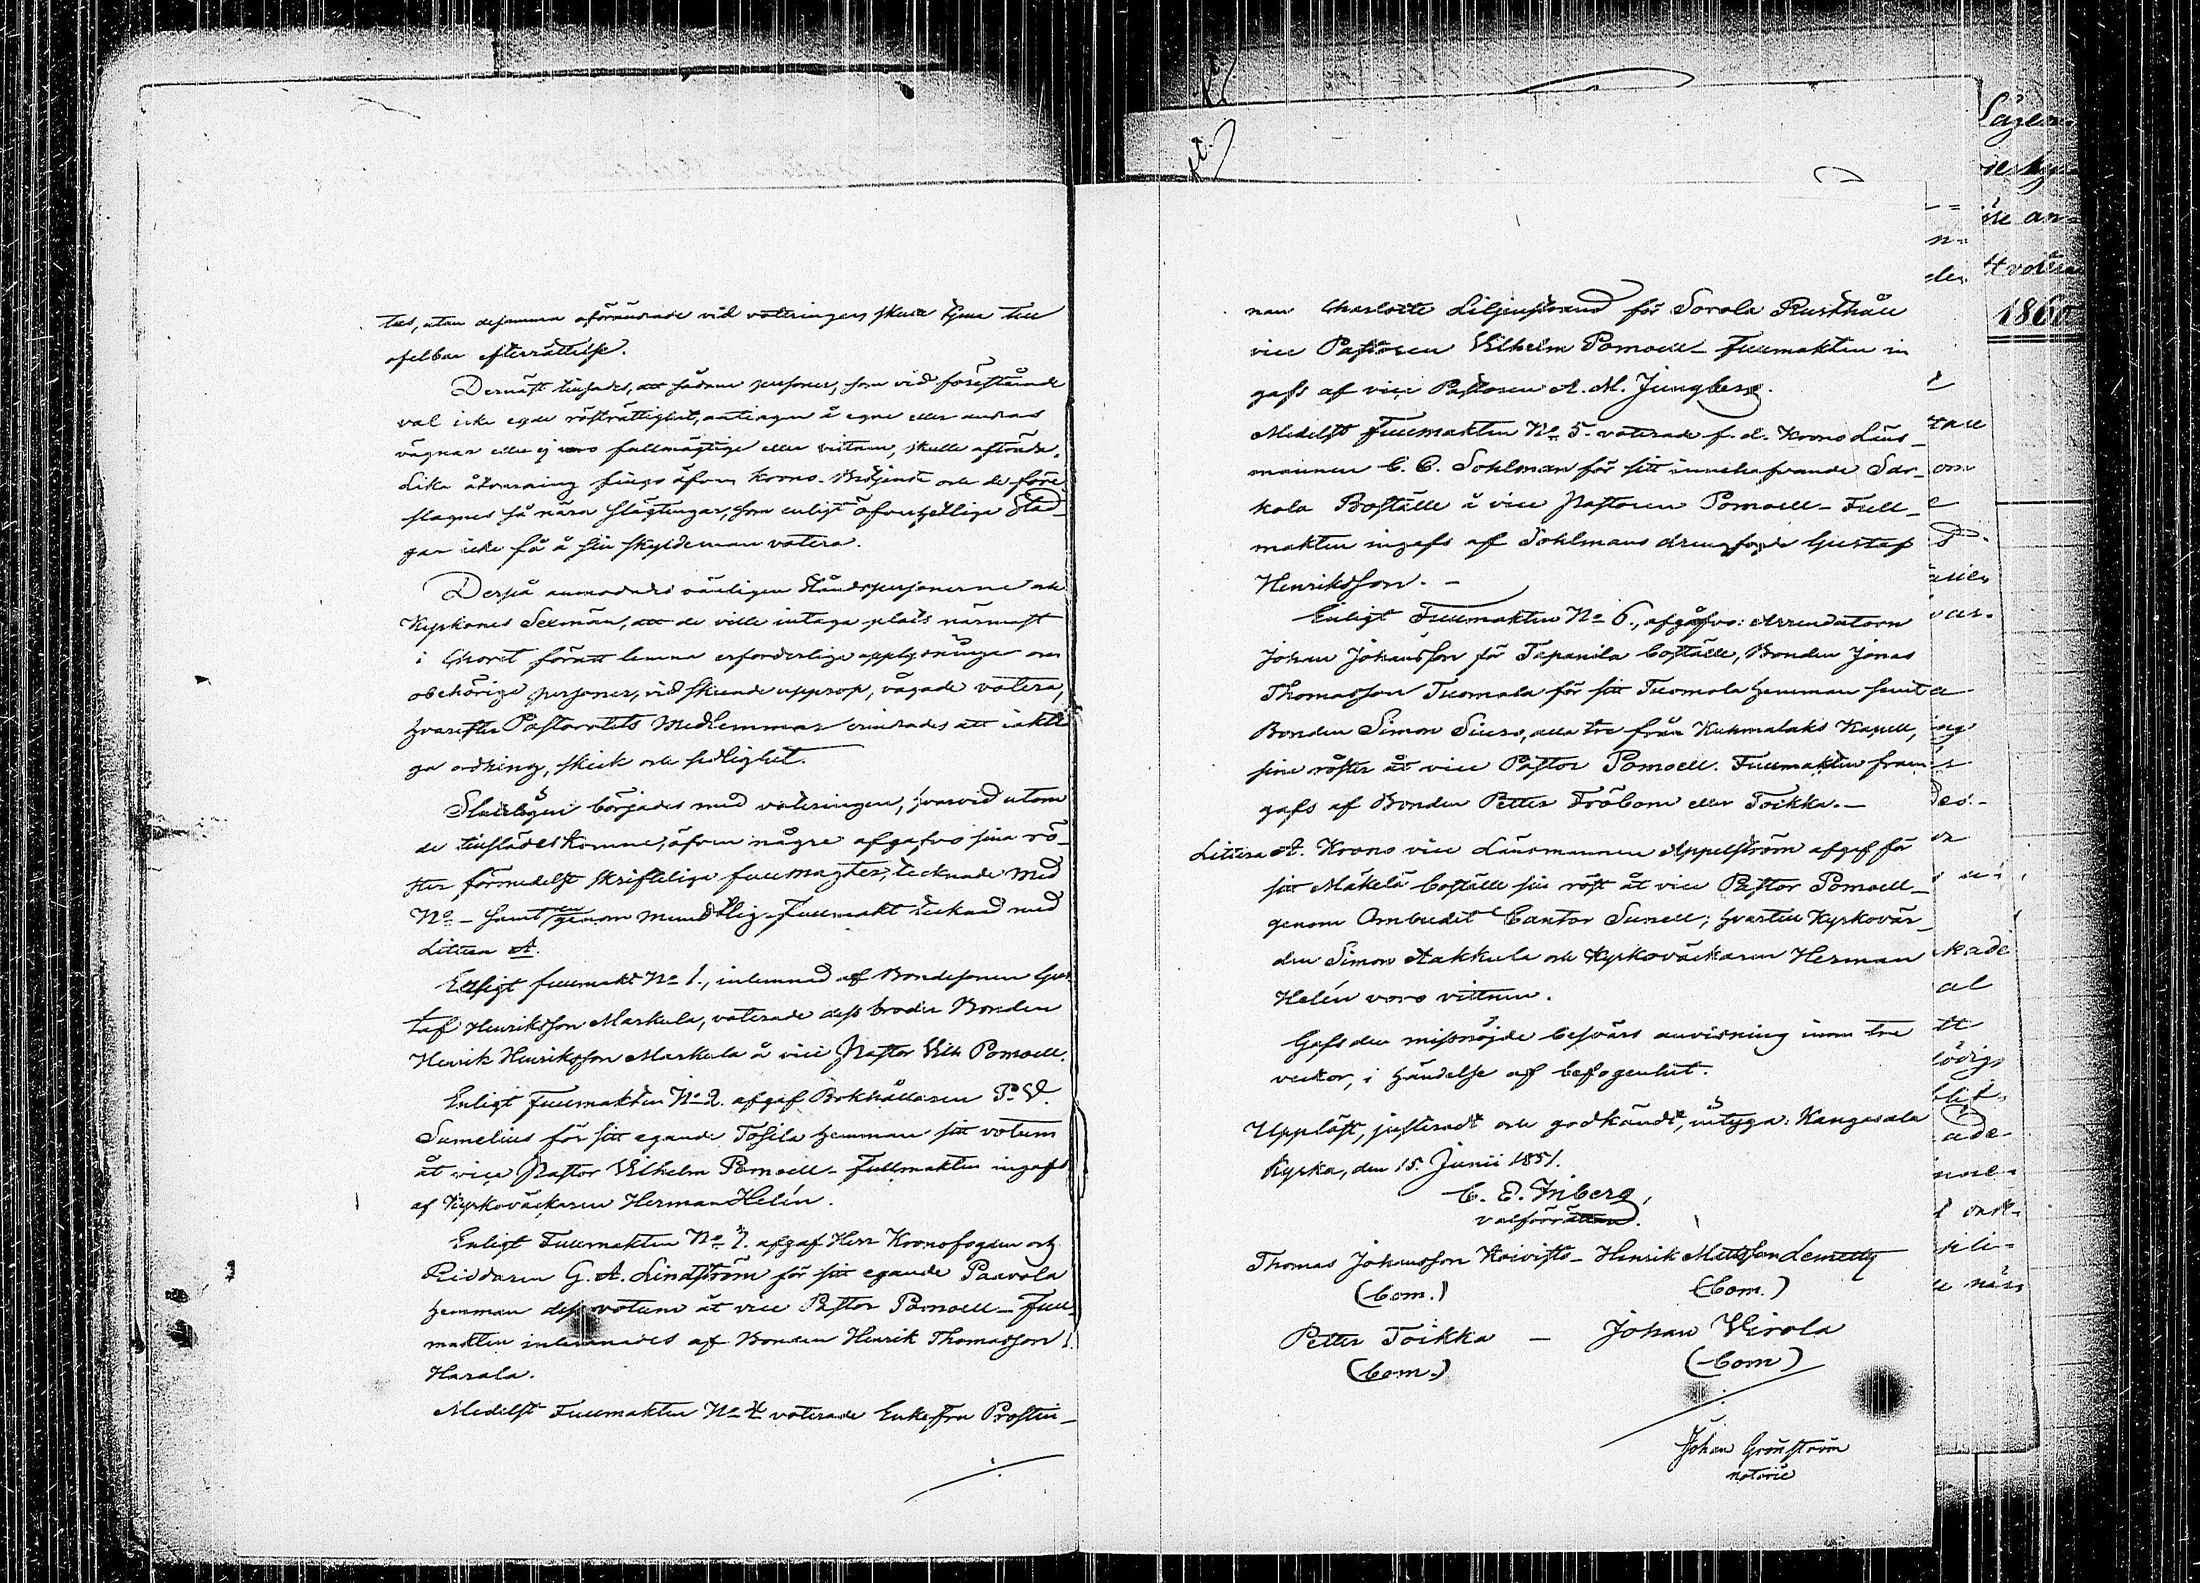 tas, utan desamma oförändrade vid voteringen skulle tjena till
ofelbar efterrättelse.
Dernäst tillsades, att sådane personer, som vid förestående
val icke egde rösträttighet, antingen å egne eller andras
vägnar eller ej voro fullmägtige eller vittnen, skulle afträda.
Lika åtvarning fingo äfven Krono-Betjente och de före
slagnes så nära slägtingar, som enligt öfverhetliga Stad-
gar icke få å sin skyldeman votera.
Derpå anmodades vänligen Ståndspersonerne och
Kyrkones Sexmän, att de ville intaga plats närmast
i Choret föratt lemna erforderliga upplysningar om
obehörige personer, vid skeende upprop, vågade votera,
hvarefter Pastoratets Medlemmar erinrades att iaktta
ga ordning, skick och sedlighet.
Slutligen börjades med voteringen, hvarvid utom
de tillstädeskomne, äfven några afgafvo sina rö-
ster förmedelst skriftliga fullmagter, tecknade med
No - samt en genom mundtlig Fullmakt tecknad med
Littera A.
Enligt fullmakt No 1., inlemnad af Bondesonen Gus
taf Henriksson Markula, voterade dess broder Bonden
Henrik Henriksson Markula å vice Pastor Vilh. Pomoell.
Enligt fullmakten No 2. afgaf Bokhållaren P. V.
Sumelius för sitt egande Tosila hemman sitt votum
åt vice Pastor Vilhelm Pomoell - fullmakten ingafs
af Kyrkoväckaren Herman Helín.
Enligt Fullmakten No 3. afgaf Herr Kronofogden och
Riddaren G. A. Lindström för sitt egande Paavola
hemman dess votum åt vice Pastor Pomoell - Full
makten inlemnades af Bonden Henrik Thomasson
Harala.
Medelst Fullmakten No 4 voterade Enkefru Prostin-
nan Charlotte Liljenstrand för Sorola Rusthåll
vice Pastoren Vilhelm Pomoell - Fullmakten in
gafs af vice Pastoren A. M. Jungberg.
Medelst Fullmakten No 5. voterade f. d. Krono Läns-
mannen C. C. Sohlman för sitt innehafvande Sar-
kola Boställe å vice Pastoren Pomoell - Full-
makten ingafs af Sohlmans drengfogde Gustaf
Henriksson. -
Enligt Fullmakten No 6., afgåfvo: Arrendatorn
Johan Johansson för Tapanila Boställe, Bonden Jonas
Thomasson Tuomala för sitt Tuomola hemman samt
Bonden Simon Siuro, alla tre från Kuhmalaks Kapell,
sine röster åt vice Pastor Pomoell. Fullmakten fram
gafs af Bonden Petter Fröbom eller Toikka. -
Littera A. Krono vice Länsmannen Appelström afgaf för
sitt Mäkelä boställe sin röst åt vice Pastor Pomoell -
genom Ombudet Cantor Sunell; hvartill Kyrkovär-
den Simon Aakkula och Kyrkoväckaren Herman
Helín voro vittnen.
Gafs den missnöjde besvärs anvisning inom tre
veckor, i händelse af befogenhet.
Uppläst, justeradt och godkändt, intyga: Kangasala
Kyrka, den 15. Junii 1851.
C. E. Inberg,
valförrättare.
Thomas Johansson Koivisto - Henrik Mattsson Lemetty
(bom.) (bom.)
Petter Toikka - Johan Virola
(bom.) (bom)
Johan Grönström
notarie
1860